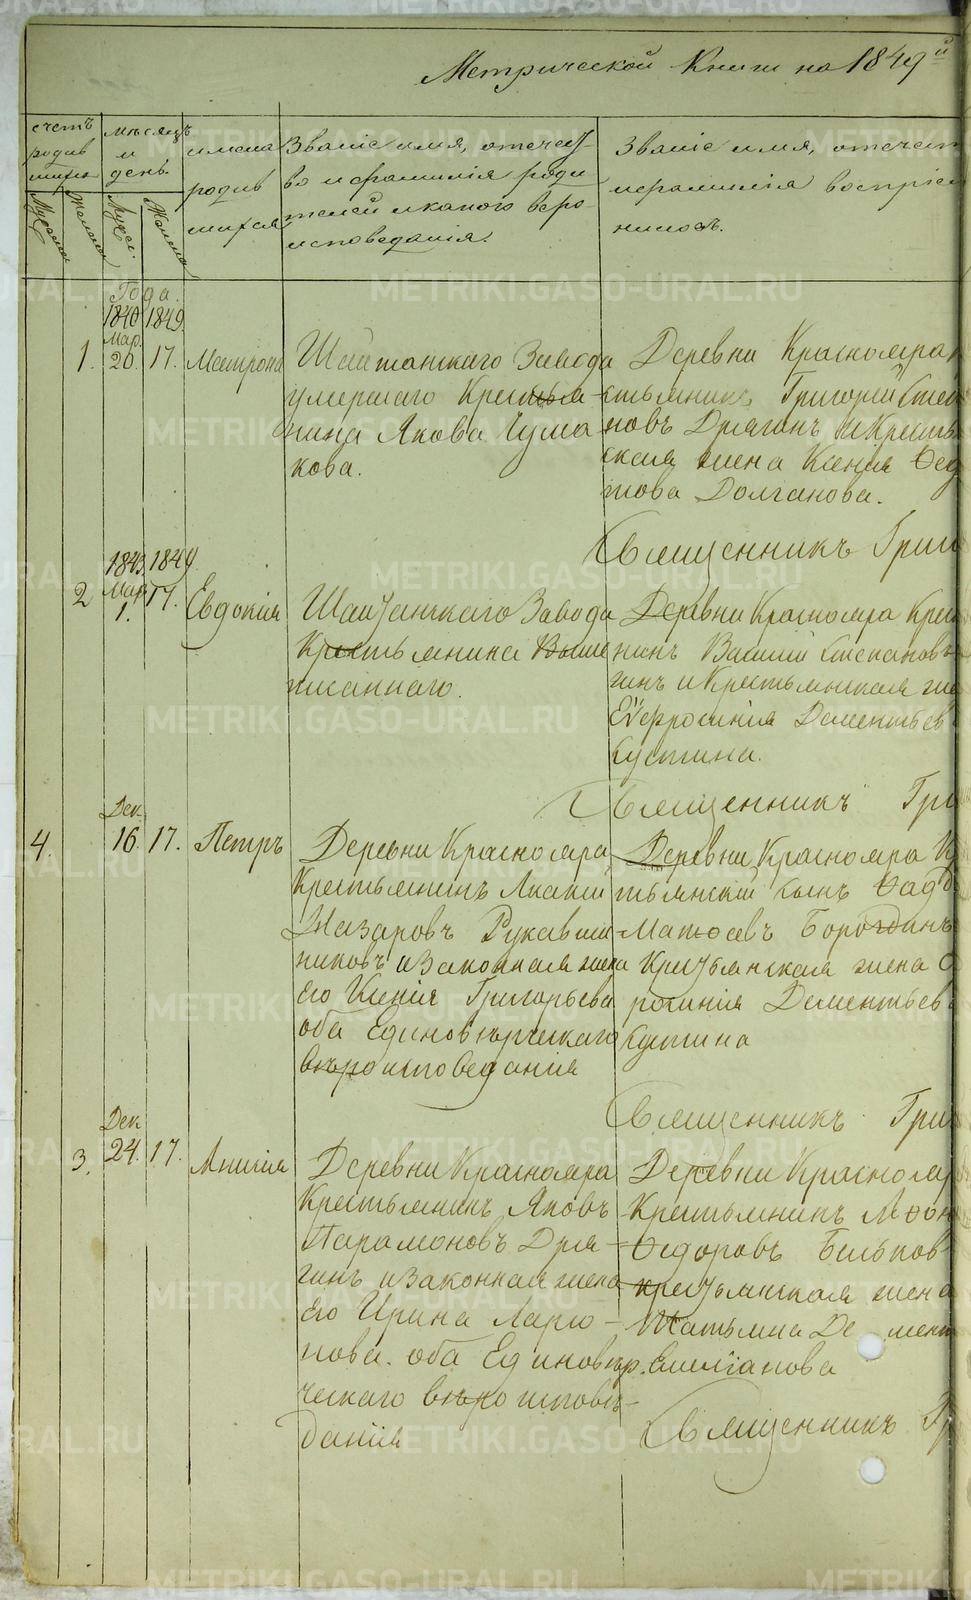 Метрической Книги на 1849й
счетъ родив шихся
мѣсяцъ и день.
имена родив шихся
Званіе имя, отечес
во и фамилія роди
телей и какого веро
исповеданія.
Званіе имя, отечест
и фамилія воспріем
никовъ.
Мужеска Женска Мужес. Женска
Года.
1840 1849.
Мар.
1. 20. 17. Матрона
Шайтанскаго Завода
умершаго Крестья
нина Якова Чума
кова.
Деревни Краснояра К
стьянинъ Григорій Степа
новъ Дрягинъ и Кресть
ская жена Ксенія Ѳед
това Долганова.
Священникъ Григ
1843 1849.
Мар
2 1. 17. Евдокія
Шайтанскаго Завода
Крестьянина Выше
писаннаго.
Деревни Краснояра Крес
нинъ Василій Степановъ
гинъ и Крестьянская же
Евфросинія Дементьев
Сустина.
Священникъ Гри
Дек
4. 16. 17. Петръ
Деревни Краснояра
Крестьянинъ Акакій
Назаровъ Рукавиш
никовъ и Законная жена
Его Ксенія Григорьева
оба Единовѣрческаго
вѣроисповеданія
Деревни Краснояра К
тьянскій сынъ Ѳад
Матѳеевъ Бородинъ
Крестьянская жена
росинія Дементьев
Сустина
Священникъ Гри
Дек
3. 24. 17. Анисія
Деревни Краснояра
Крестьянинъ Яковъ
Парамоновъ Дря-
гинъ и Законная жена
Его Ирина Ларіо-
нова. оба Единовѣр.
ческаго вѣро исповѣ-
данія
Деревни Краснояр
Крестьянинъ
Ѳедоровъ Бѣльков
крестьянская жена
Татьяна Де мент
Емиліанова
Священникъ Гр
METRIKI.GASO-URAL.RU